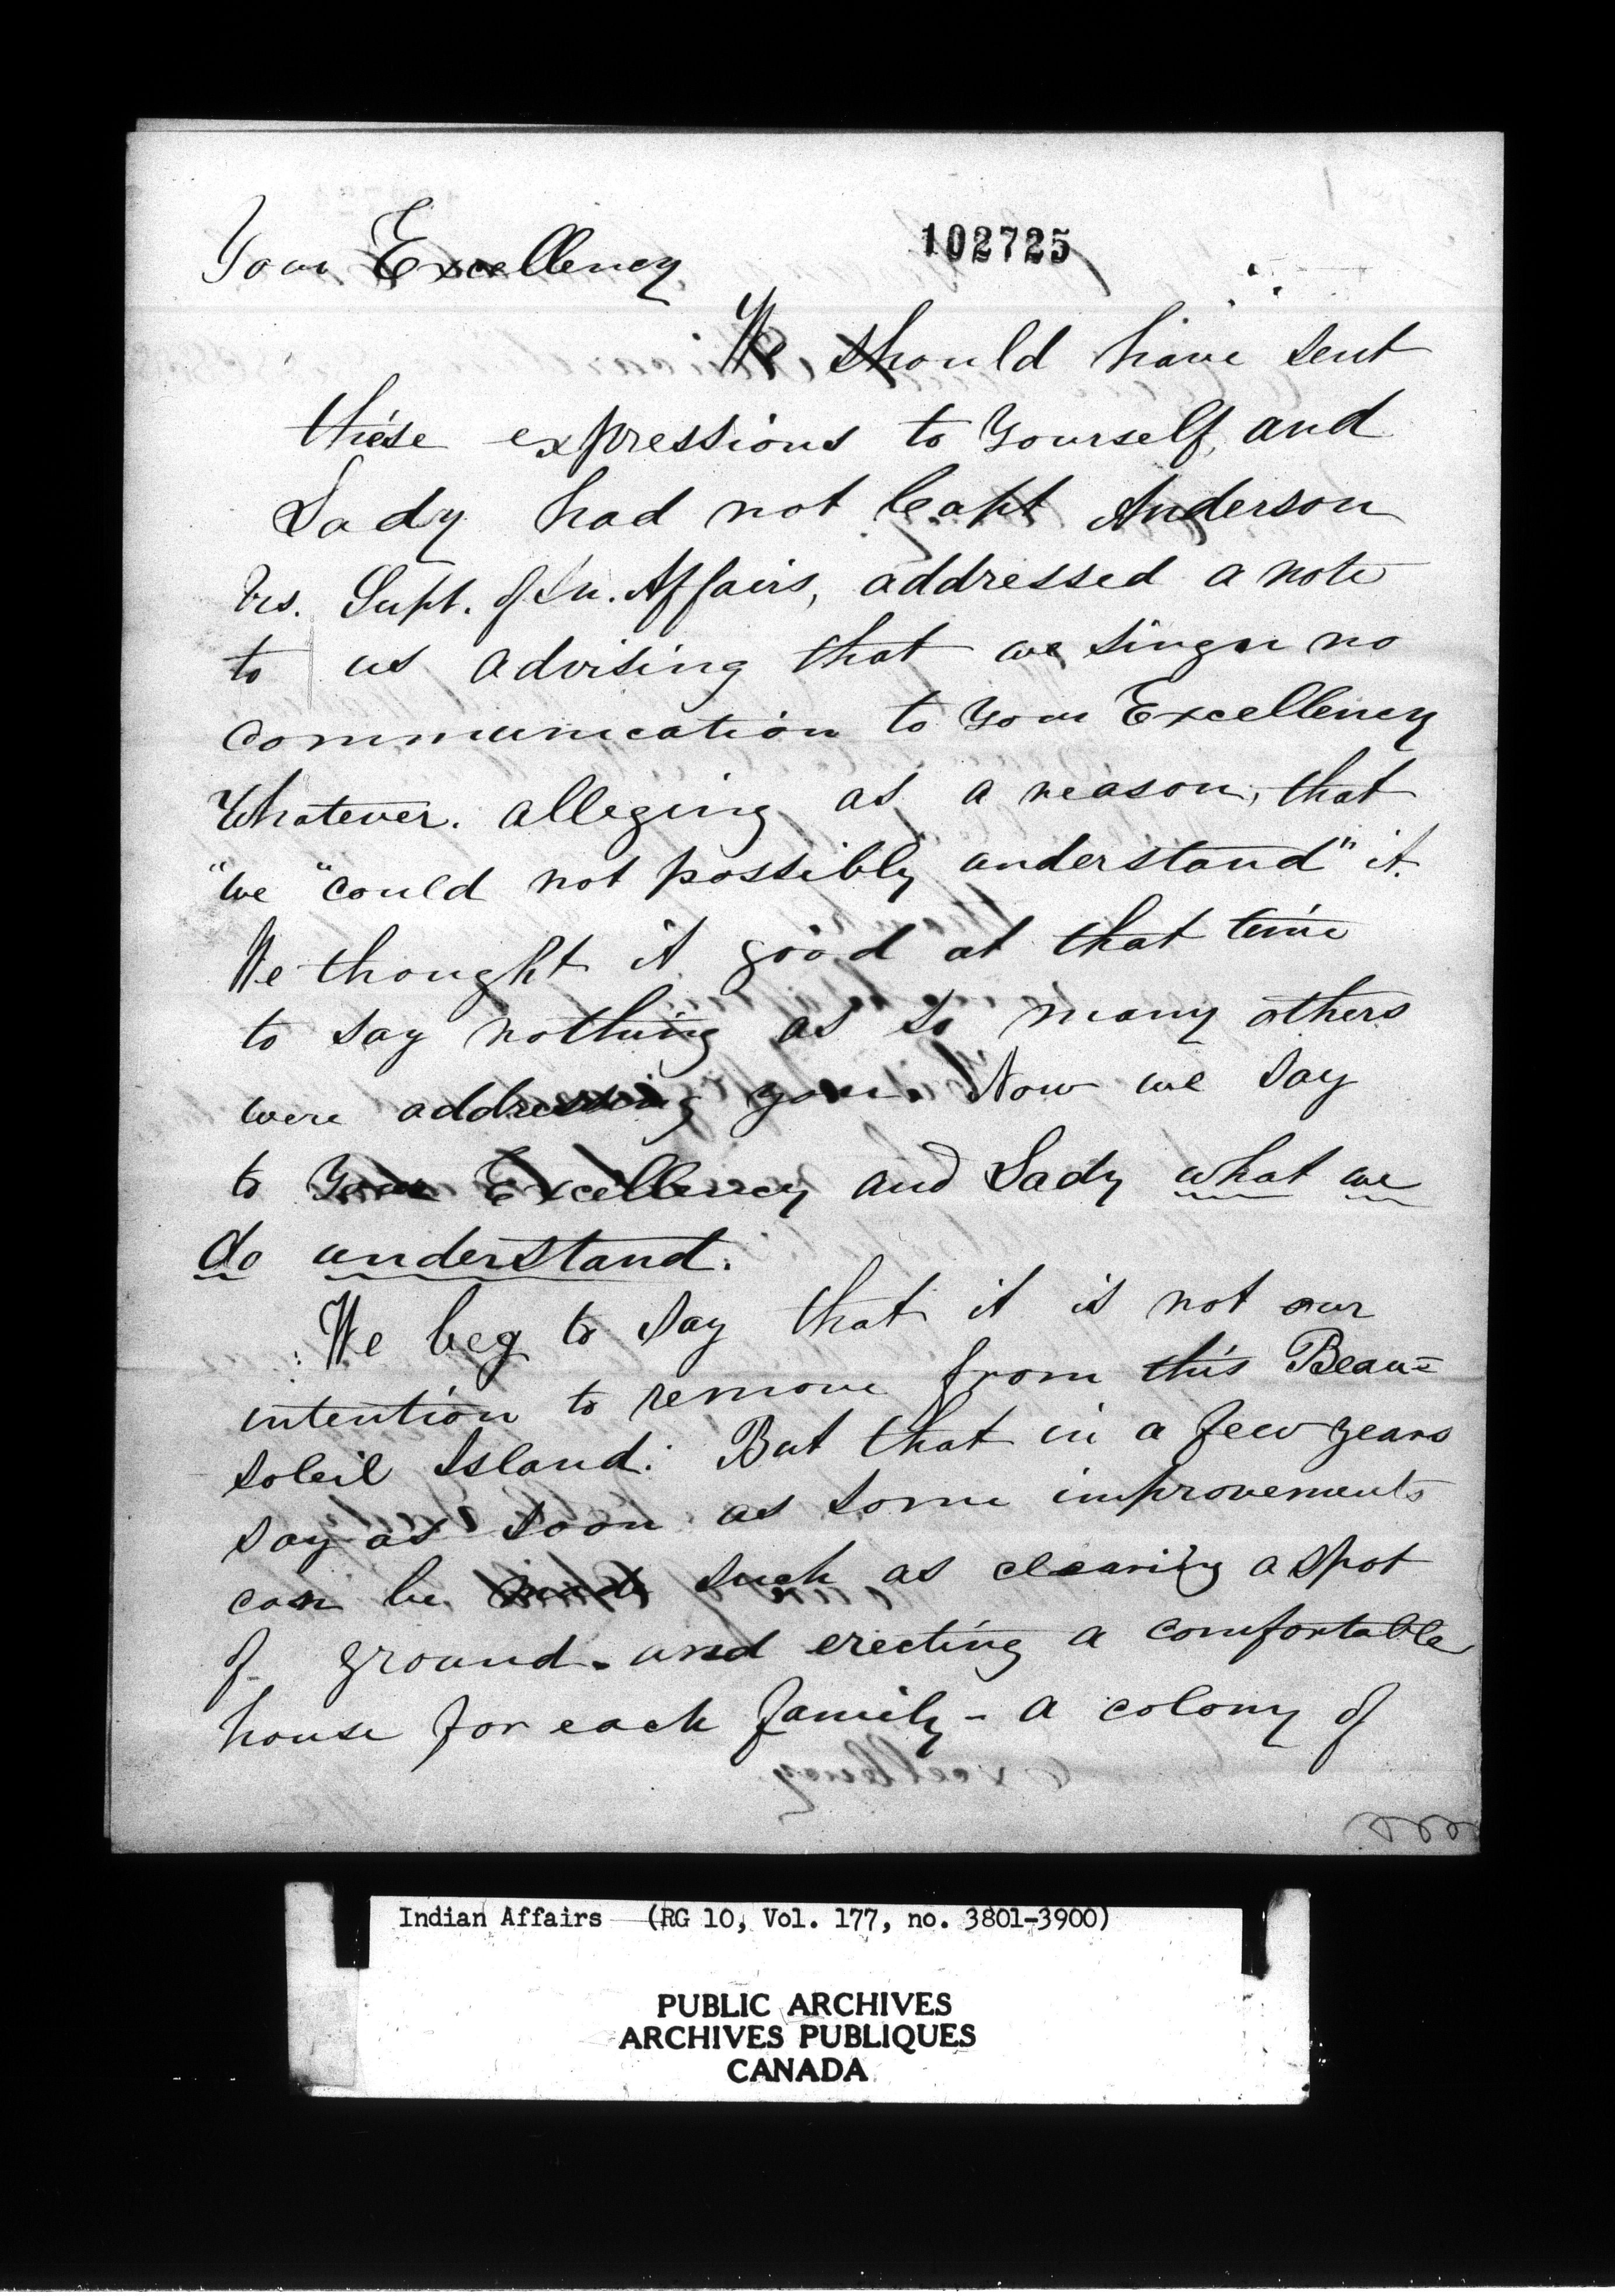 102725
Your Excellency
We should have sent
these expressions to Yourself, and
Lady had not Capt Anderson
Vis. Supt. of In. Affairs, addressed a note
to us advising that we singn no
communication to Your Excellency
Whatever. alleging as a reason, that
"we "could not possibly understand" it.
We thought it good at that time
to say nothing as so many others
were addressing you. Now we say
to Your Excellency and Lady what we
do understand.
We beg to say that it is not our
intention to remove from this Beau=
soleil Island. But that in a few years
say as soon as some improvements
can be made such as clearing a spot
of ground. and erecting a comfortable
house for each family - a colony of
Indian Affairs (RG 10, Vol. 177, no. 3801-3900)
PUBLIC ARCHIVES
ARCHIVES PUBLIQUES
CANADA